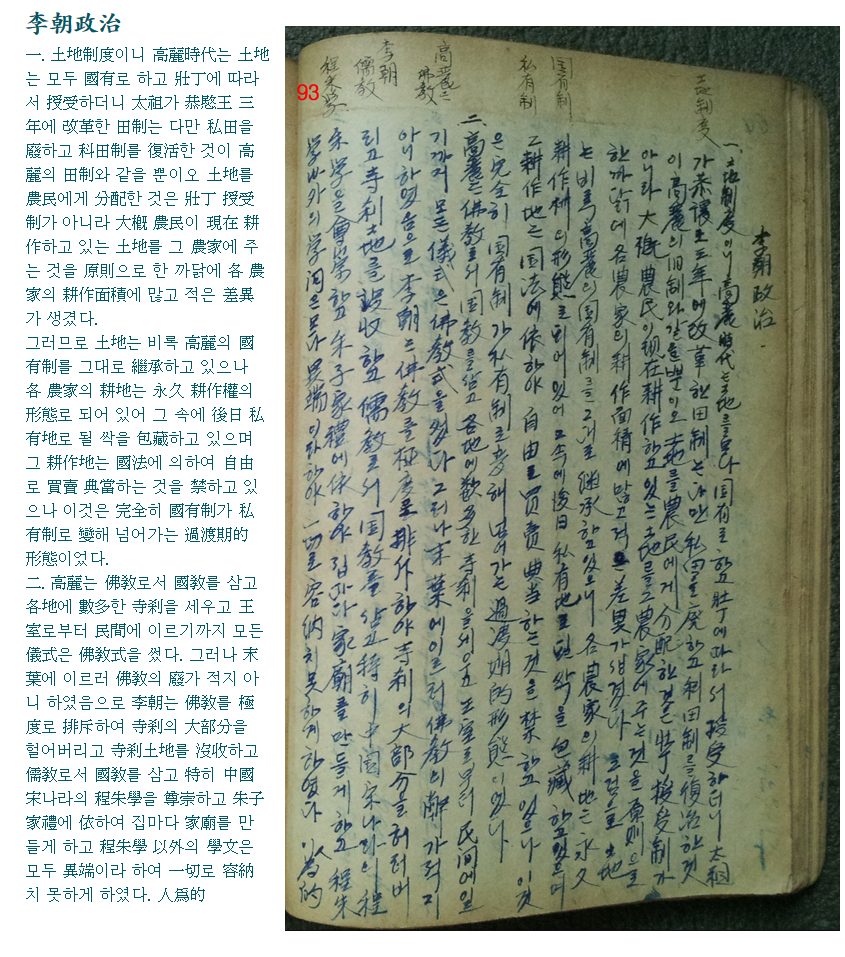 李朝政治
一. 土地制度이니 高麗時代는 土地
는 모두 國有로 하고 壯丁에 따라
서 授受하더니 太祖가 恭愍王 三
年에 改革한 田制는 다만 私田을
廢하고 科田制를 復活한 것이 高
麗의 田制와 같을 뿐이오 土地를
農民에게 分配한 것은 壯丁 授受
制가 아니라 大槪 農民이 現在 耕
作하고 있는 土地를 그 農家에 주
는 것을 原則으로 한 까닭에 各 農
家의 耕作面積에 많고 적은 差異
가 생겼다.
그러므로 土地는 비록 高麗의 國
有制를 그대로 繼承하고 있으나
各 農家의 耕地는 永久 耕作權의
形態로 되어 있어 그 속에 後日 私
有地로 될 싹을 包藏하고 있으며
그 耕作地는 國法에 의하여 自由
로 買賣 典當하는 것을 禁하고 있
으나 이것은 完全히 國有制가 私
有制로 變해 넘어가는 過渡期的
形態이었다.
二. 高麗는 佛敎로서 國敎를 삼고
各地에 數多한 寺刹을 세우고 王
室로부터 民間에 이르기까지 모든
儀式은 佛敎式을 썼다. 그러나 末
葉에 이르러 佛敎의 廢가 적지 아
니 하였음으로 李朝는 佛敎를 極
度로 排斥하여 寺刹의 大部分을
헐어버리고 寺刹土地를 沒收하고
儒敎로서 國敎를 삼고 特히 中國
宋나라의 程朱學을 尊崇하고 朱子
家禮에 依하여 집마다 家廟를 만
들게 하고 程朱學 以外의 學文은
모두 異端이라 하여 一切로 容納
치 못하게 하였다. 人爲的
93
土地制度
国有制
私有制
高麗는
佛教
李朝
儒教
程朱学
李朝政治.
一. 土地制度이니 高麗時代는 土地를 모다 国有로 하고 壯丁에 따라서 授受하더니 太祖
가 恭讓王 三年에 改革한 田制는 다만 私田을 廃하고 科田制를 復活한 것
이 高麗의 旧制와 같을 뿐이오 土地를 農民에게 分配한 것은 壯丁 授受制가
아니라 大槪 農民이 現在 耕作하고 있는 土地를 그 農家에 주는 것을 原則으로
한 까닭에 各 農家의 耕作面積에 많고 적은 差異가 생겼다 그럼으로 土地
는 비록 高麗의 国有制를 그대로 継承하고 있으니 各 農家의 耕地는 永久
耕作权의 形態로 되어 있어 그 속에 後日 私有地로 될 싹을 包藏하고 있으며
그 耕作地는 国法에 依하야 自由로 買賣 典当하는 것을 禁하고 있으나 이것
은 完全히 国有制가 私有制로 変해 넘어가는 過渡期的 形態이었다
二. 高麗는 佛教로서 国教를 삼고 各地에 數多한 寺刹을 세우고 王室로부터 民間에 일
기까지 모든 儀式은 佛教式을 썼다 그러나 末葉에 이르러 佛教의 弊가 적지
아니하였음으로 李朝는 佛教를 極度로 排斥하야 寺刹의 大部分을 허러버
리고 寺刹土地를 沒收하고 儒教로서 国教를 삼고 特히 中国 宋나라의 程
朱学을 尊崇하고 朱子家禮에 依하야 집마다 家廟를 만들게 하고 程朱
学 以外의 学问은 모다 異端이라 하야 一切로 容納치 못하게 하였다 人為的